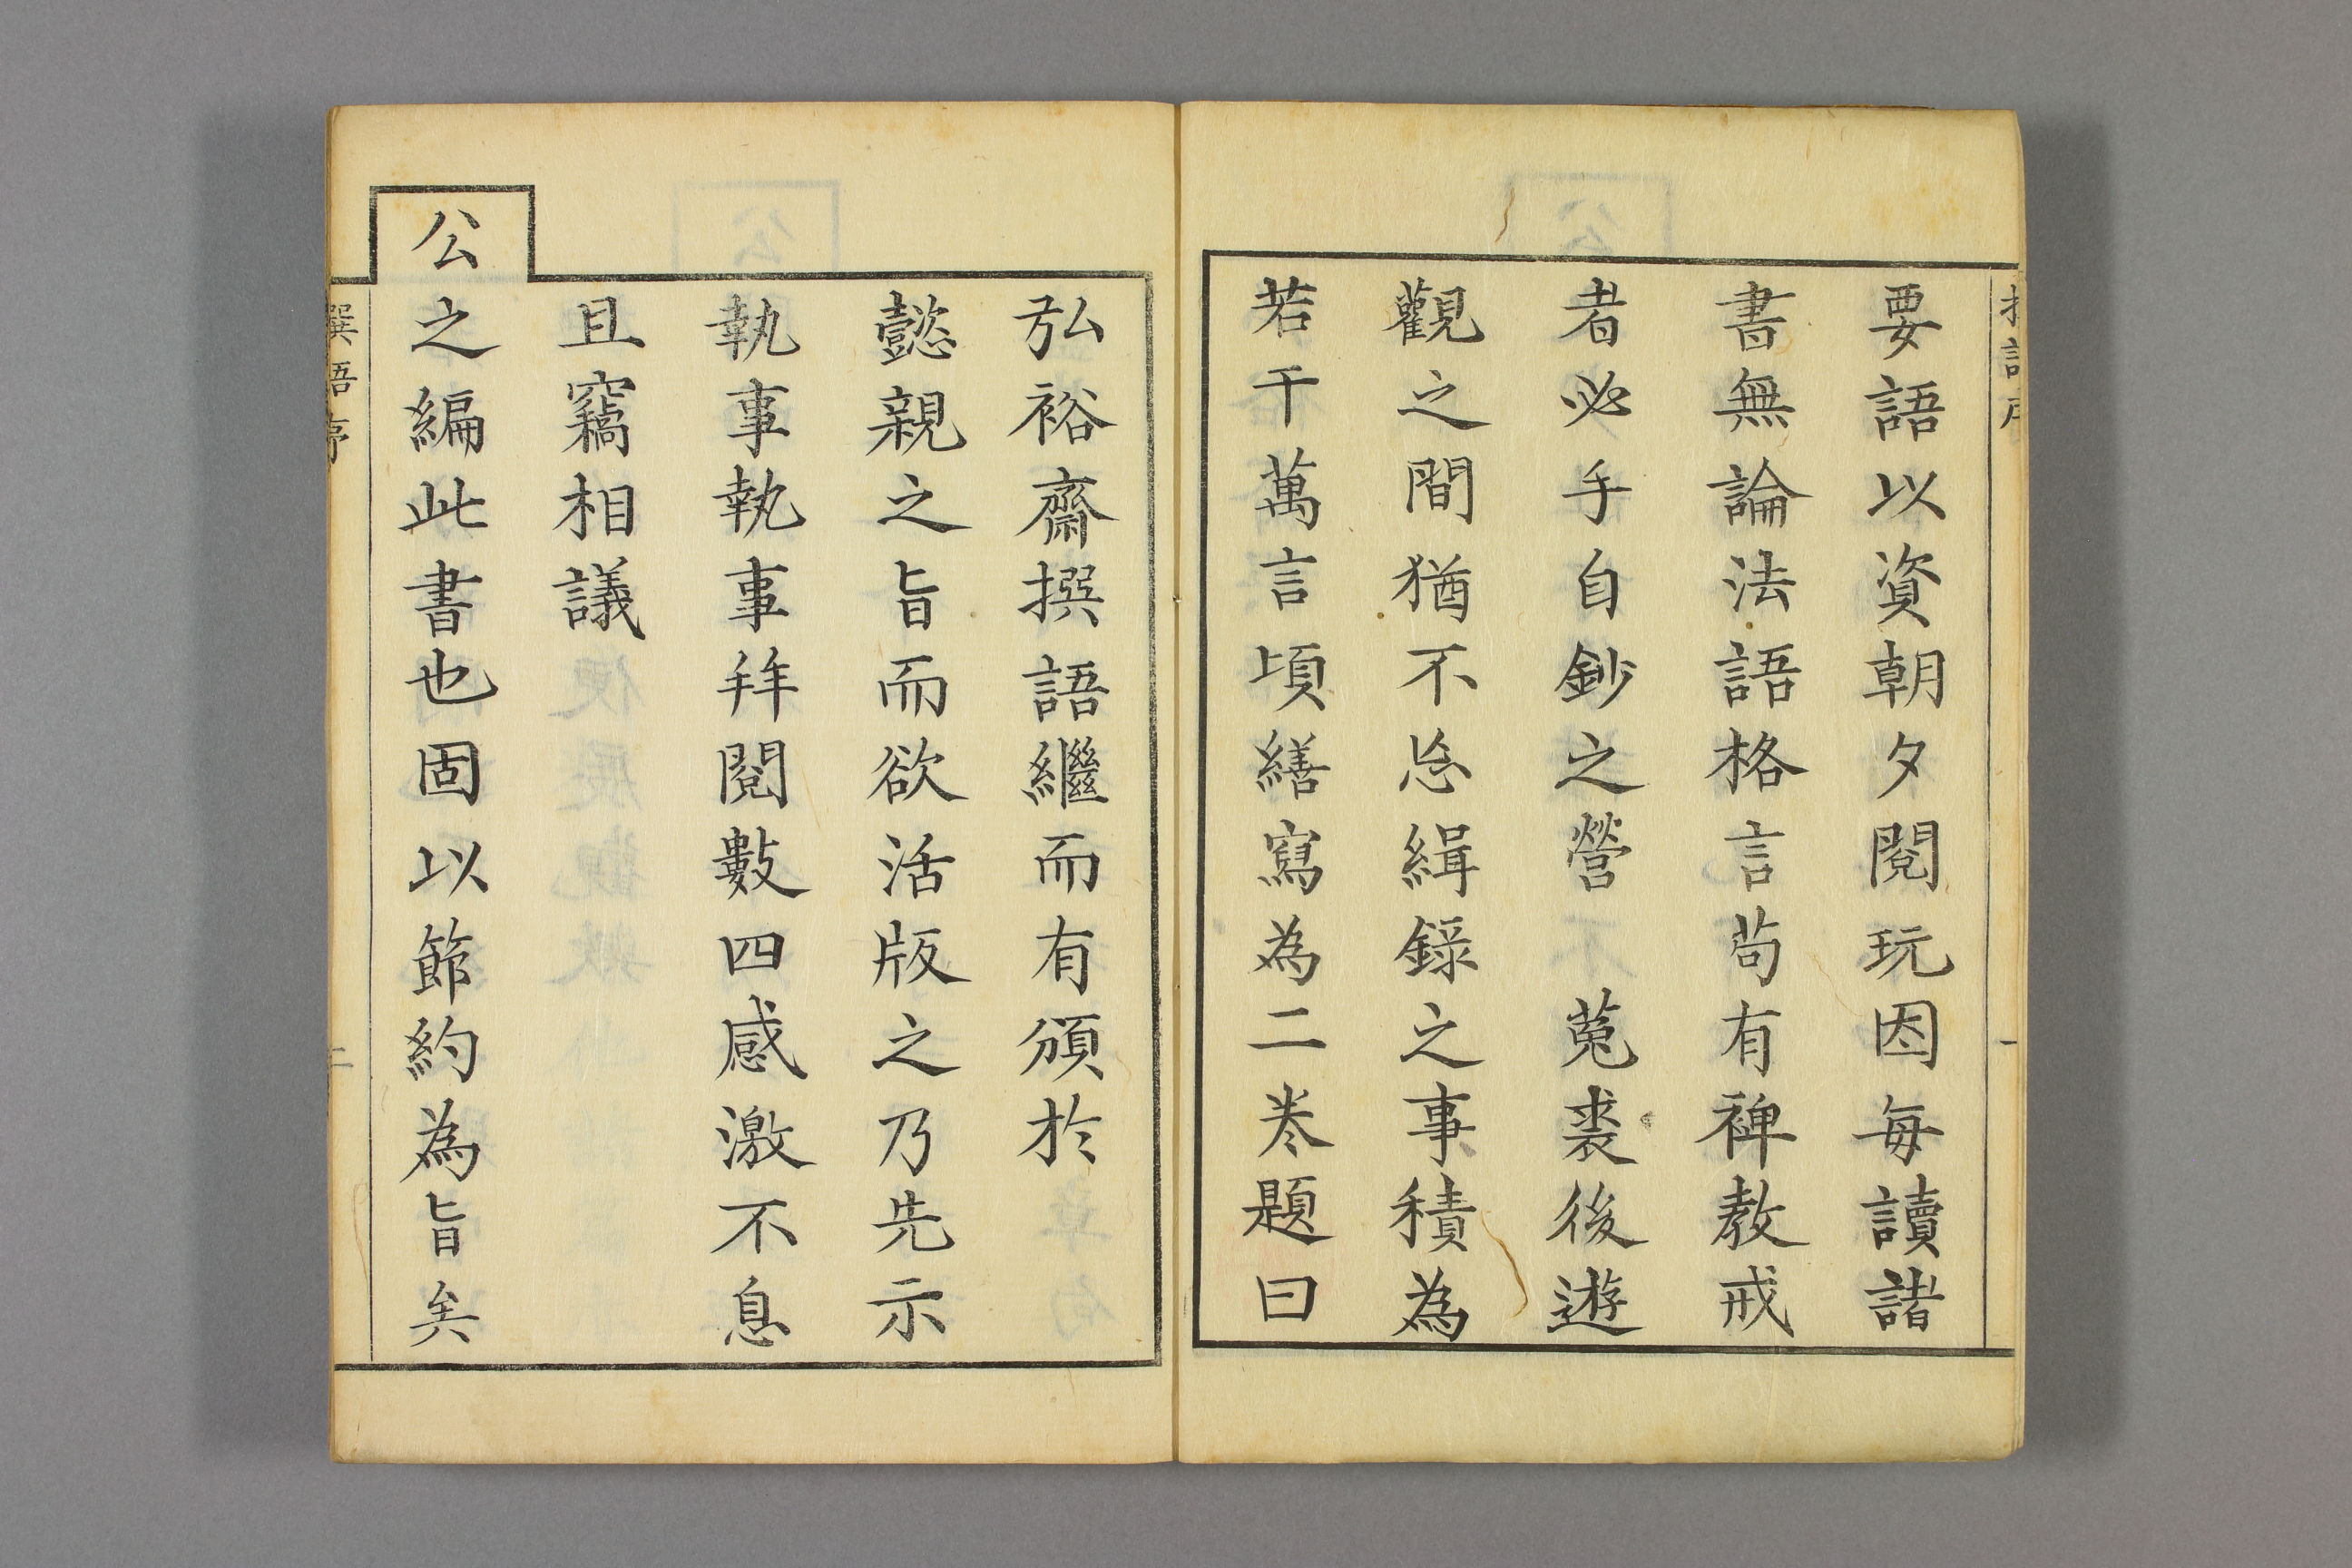 要語以資朝夕閱玩因每讀諸
書無論法語格言苟有裨教戒
者必手自鈔之營菟裘後遊
觀之間猶不忘緝錄之事積為
若干萬言頃繕寫為二卷題曰
弘裕齋撰語繼而有頒於
懿親之旨而欲活版之乃先示
執事執事拜閱數四感激不息
且竊相議
公
之編此書也固以節約為旨矣
撰語序
二